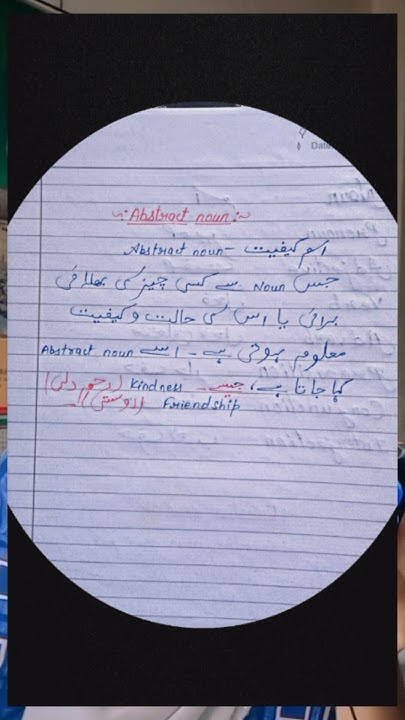 Date
:~ Abstract noun :~
اسم کیفیت - Abstract noun
جس Noun سے کسی چیز کی بھلائی
برائی یا اس کی حالت و کیفیت
معلوم ہوتی ہے - اسے Abstract noun
کہا جاتا ہے، جیسے - Kindness (رحم دلی)
Friendship (دوستی)